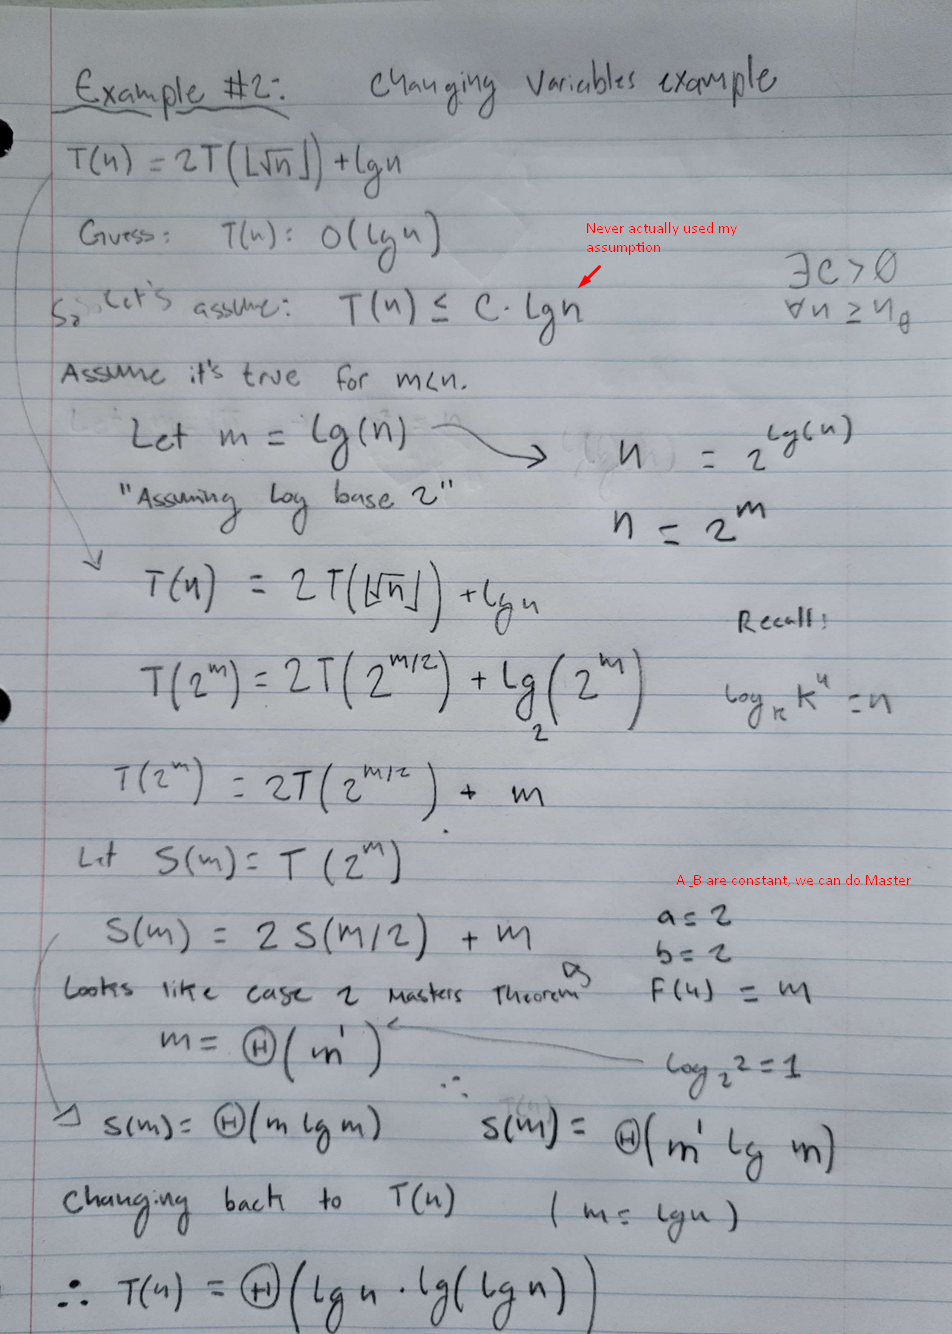 Example #2: Changing Variables example
T(n) = 2T(⌊√n⌋) + lgn
Guess: T(n): O(lgn)
Never actually used my
assumption
∃C > 0
∀n ≥ n₀
So, Let's assume: T(n) ≤ C·lgn
Assume it's true for m<n.
Let m = lg(n)
n = 2^lg(n)
"Assuming Log base 2"
n = 2^m
T(n) = 2T(⌊√n⌋) + lgn
Recall:
T(2^m) = 2T(2^m/2) + lg₂(2^m)
log_k k^n = n
T(2^m) = 2T(2^m/2) + m
Let S(m) = T(2^m)
A_B are constant, we can do Master
S(m) = 2S(m/2) + m
a = 2
b = 2
Looks like case 2 Masters Theorem
F(n) = m
m = Θ(m^1)
log₂2 = 1
S(m) = Θ(m lg m) ∴ S(m) = Θ(m^1 lg m)
Changing back to T(n) (m = lgn)
∴ T(n) = Θ(lgn · lg(lgn))